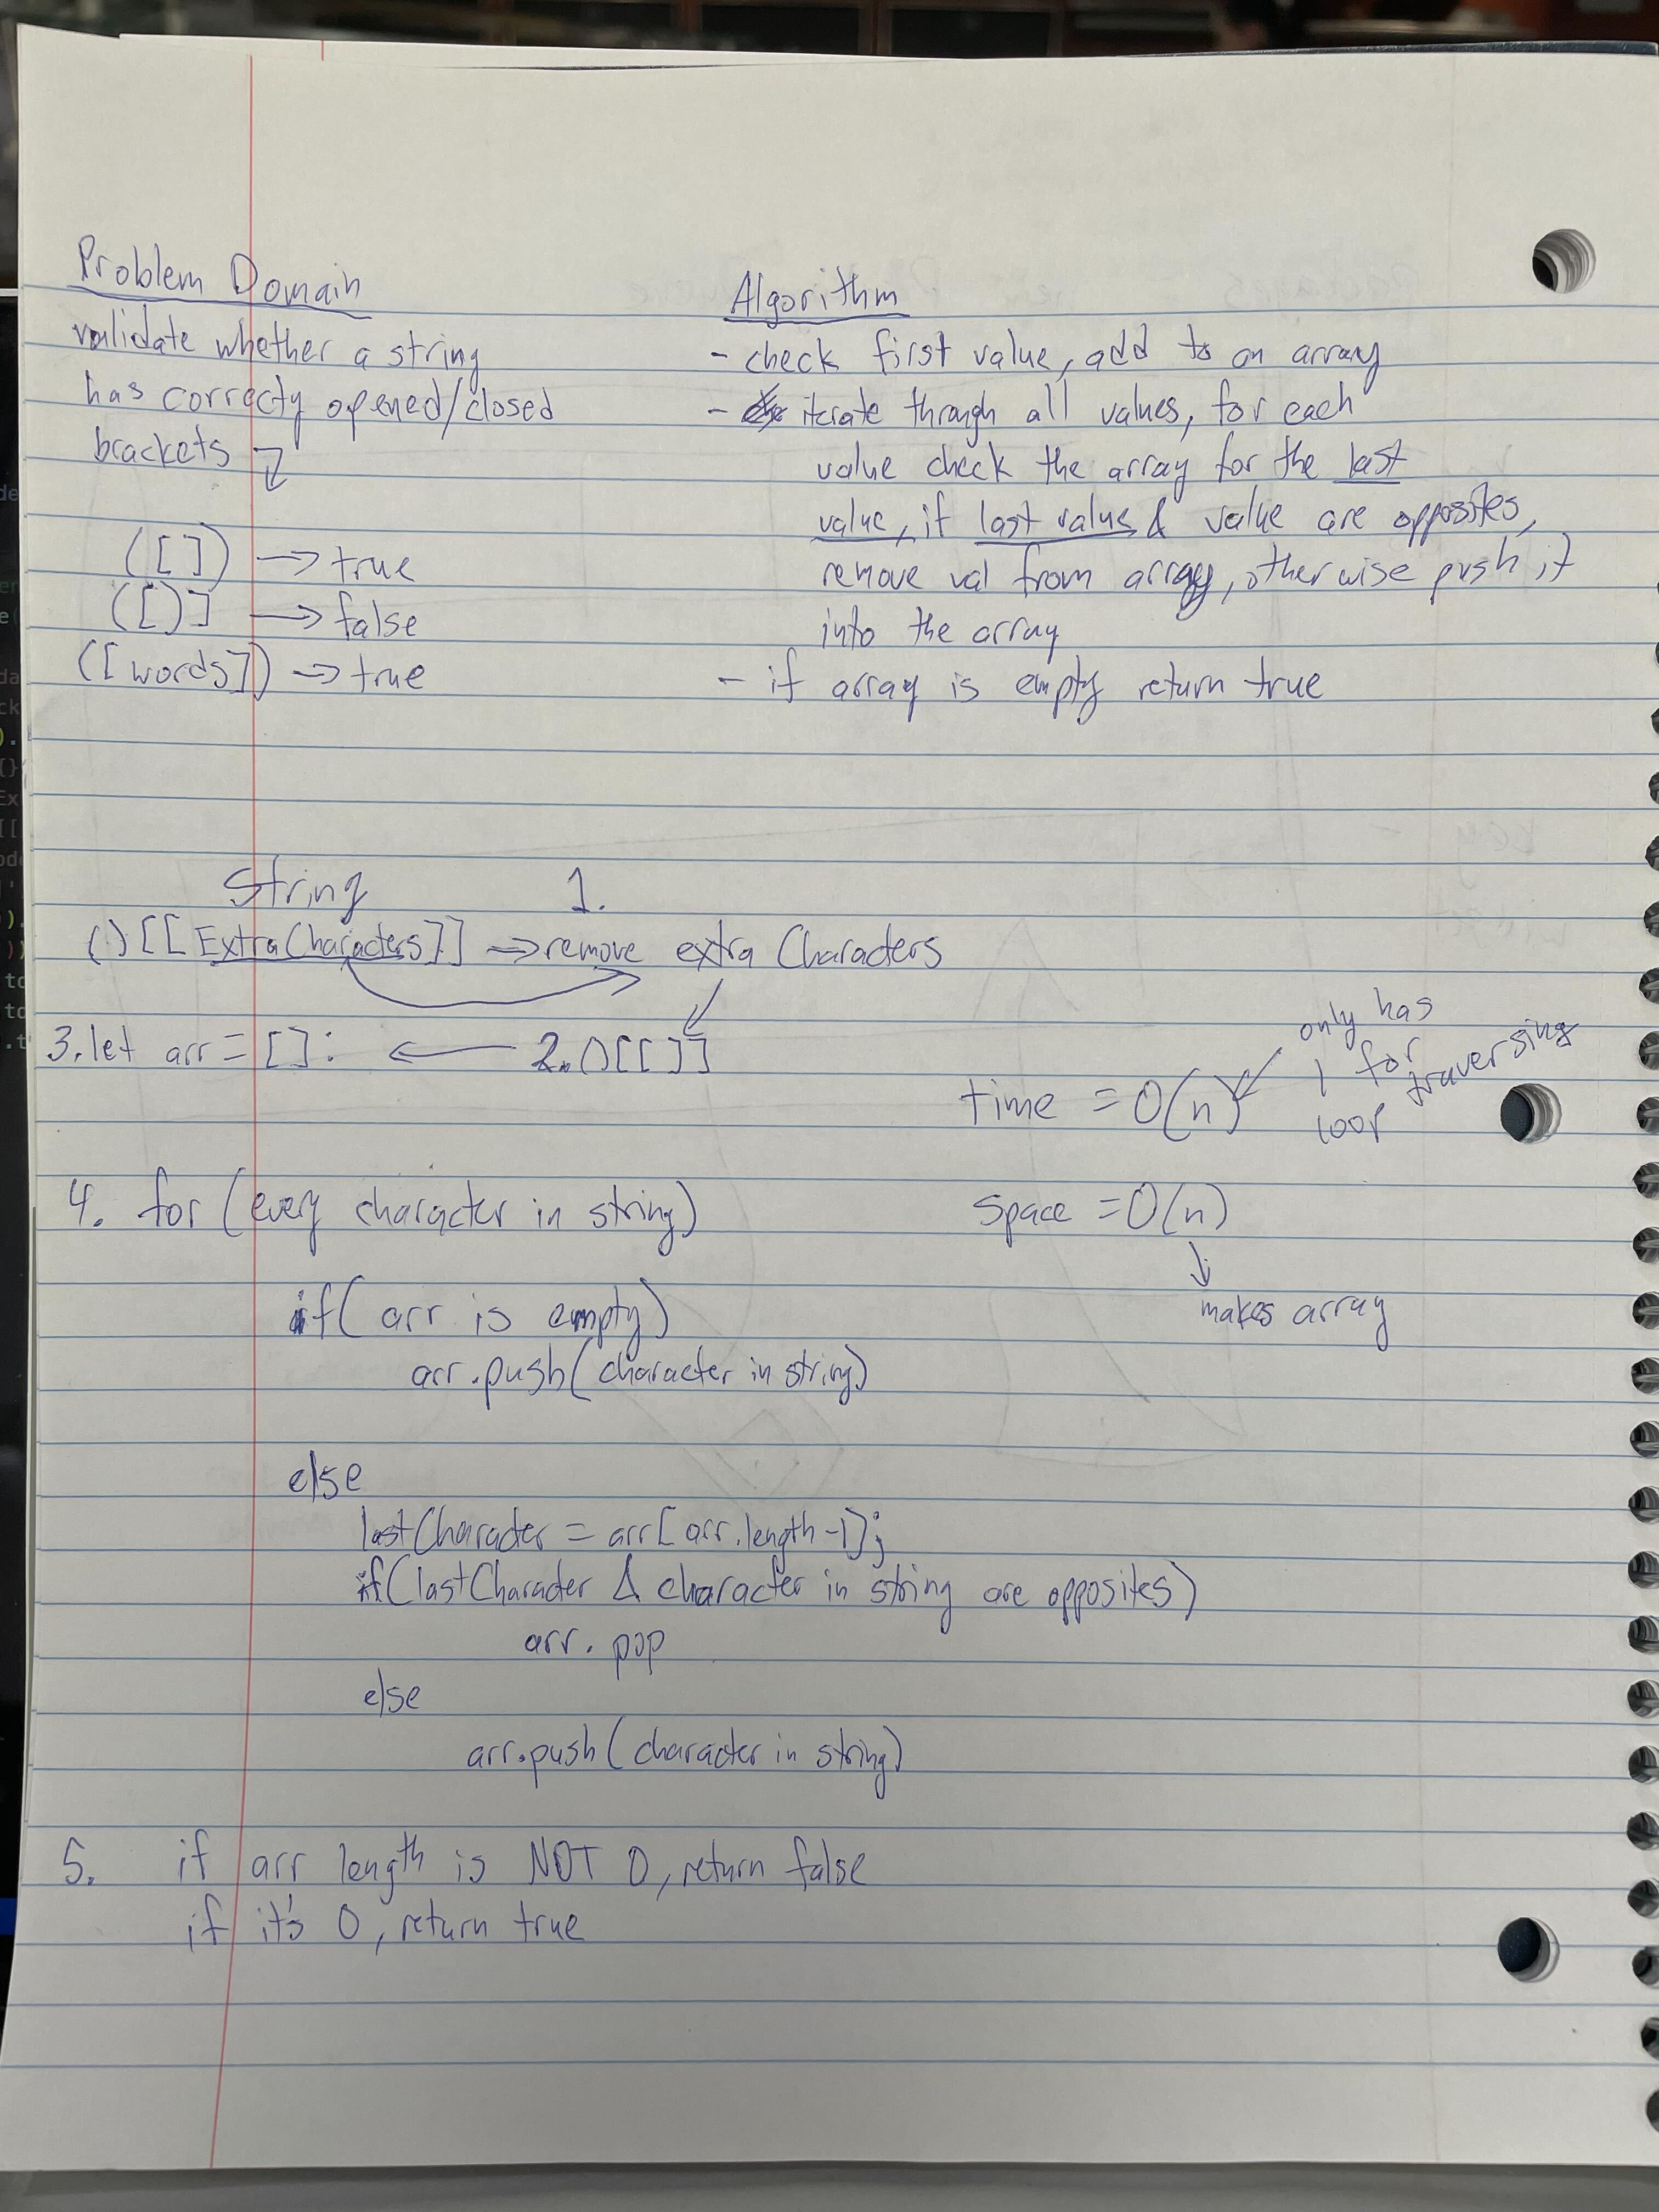 Problem Domain
validate whether a string
has correcty opened/closed
brackets
([]) → true
([)] → false
([words]) → true
Algorithm
- check first value, add to an array
- iterate through all values, for each
value check the array for the last
value, if last value & value are opposites,
remove val from array, otherwise push it
into the array
- if array is empty return true
String
1.
()[[ExtraCharacters]] → remove extra Characters
3. let arr = []: ← 2. ()[[]]
time = O(n)
only has
1 for traversing
loop
space = O(n)
↓
makes array
4. for (every character in string)
if( arr is empty)
arr.push( character in string)
else
lastCharacter = arr[arr.length-1];
if(lastCharacter & character in string are opposites)
arr. pop
else
arr.push( character in string)
5. if arr length is NOT 0, return false
if it's 0, return true